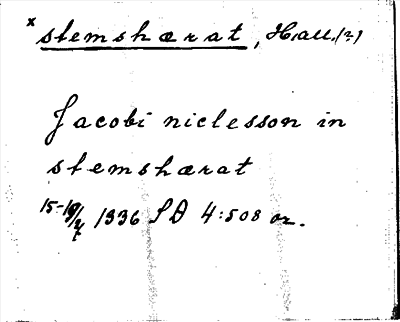 x slemshærat, Hall.(?)
Jacobi niclesson in
slemshærat
1336 SD 4:508 or.